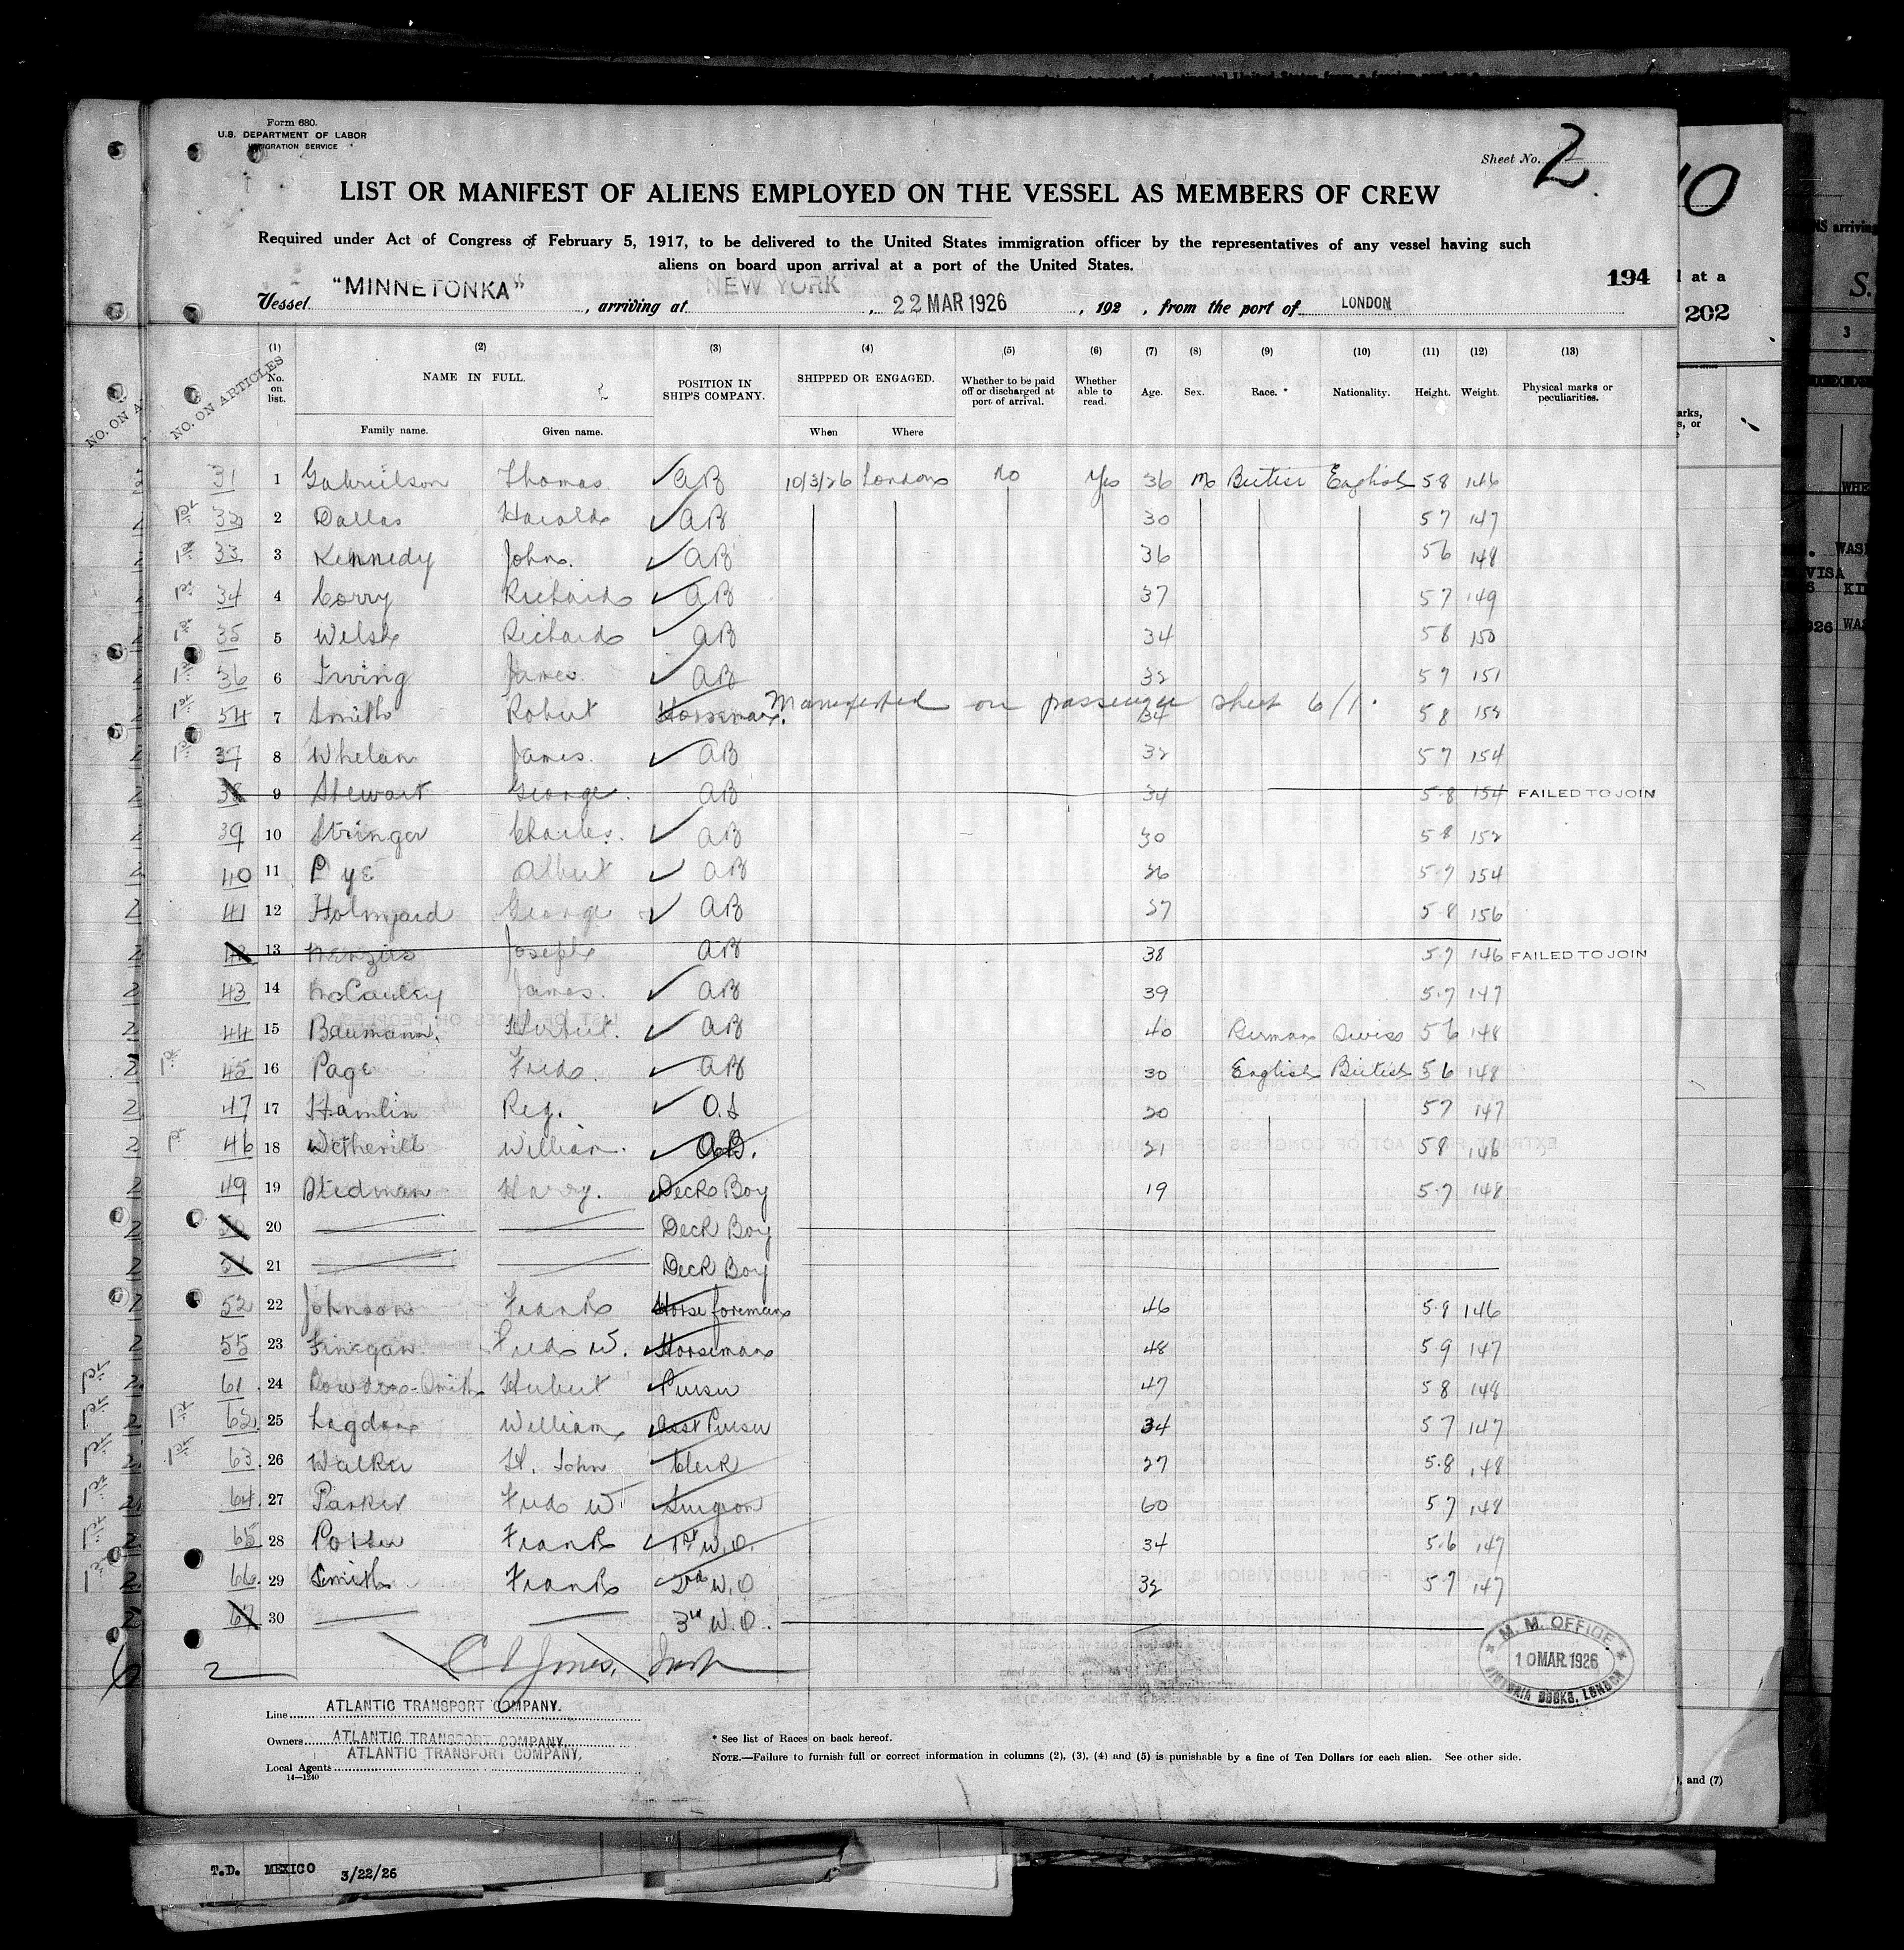 Form 680.
U.S. DEPARTMENT OF LABOR
IMMIGRATION SERVICE
Sheet No. 2
LIST OR MANIFEST OF ALIENS EMPLOYED ON THE VESSEL AS MEMBERS OF CREW
Required under Act of Congress of February 5, 1917, to be delivered to the United States immigration officer by the representatives of any vessel having such
aliens on board upon arrival at a port of the United States.
194
Vessel "MINNETONKA", arriving at NEW YORK, 22 MAR 1926, 192 , from the port of LONDON
NO. ON ARTICLES
(1) (2) (3) (4) (5) (6) (7) (8) (9) (10) (11) (12) (13)
No. on list. NAME IN FULL. POSITION IN SHIP'S COMPANY. SHIPPED OR ENGAGED. Whether to be paid off or discharged at port of arrival. Whether able to read. Age. Sex. Race. * Nationality. Height. Weight. Physical marks or peculiarities.
Family name. Given name. When Where
31 1 Gabrielson Thomas AB 10/3/26 London no Yes 36 m British English 5 8 146
1st 32 2 Dallas Harold AB 30 5 7 147
1st 33 3 Kennedy John. AB 36 5 6 148
1st 34 4 Corry Richard AB 37 5 7 149
1st 35 5 Welsh Richard AB 34 5 8 150
1st 36 6 Irving James AB 32 5 7 151
1st 54 7 Smith Robert Horseman. Manifested on passenger sheet 6/1. 34 5 8 152
1st 37 8 Whelan James. AB 32 5 7 154
38 9 Stewart George. AB 34 5.8 154 FAILED TO JOIN
39 10 Stringer Charles. AB 30 5.8 152
40 11 Pye Albert AB 26 5.7 154
41 12 Holmyard George AB 27 5.8 156
42 13 Menzies Joseph AB 38 5.7 146 FAILED TO JOIN
43 14 McCauley James. AB 39 5.7 147
44 15 Baumann. Herbert. AB 40 German Swiss 5 6 148
1st 45 16 Page Fred. AB 30 English British 5 6 148
47 17 Hamlin Reg. O.S 20 5 7 147
1st 46 18 Wetherill William. AB. 21 5 8 146
49 19 Stedman Harry. Deck Boy 19 5.7 148
50 20 Deck Boy
51 21 Deck Boy
52 22 Johnson Frank Horse foreman 46 5.9 146
55 23 Finegan Fred W. Horseman 48 5 9 147
1st 61. 24 Bowden-Smith Herbert Purser 47 5 8 148
1st 1st 62. 25 Lagdon William Asst Purser 34 5 7 147
1st 1st 63. 26 Walker St. John Clerk 27 5.8 148
1st 64. 27 Parker Fred W. Surgeon 60 5 7 148
1st 65. 28 Potter Frank 1st W.O. 34 5.6 147
1st 66. 29 Smith Frank 2nd W.O 32 5.7 147
67 30 3rd W.O.
2 C I Jones,
M. M. OFFICE
10 MAR. 1926
VICTORIA DOCKS, LONDON
Line ATLANTIC TRANSPORT COMPANY.
Owners ATLANTIC TRANSPORT COMPANY.
Local Agents ATLANTIC TRANSPORT COMPANY.
14—1240
* See list of Races on back hereof.
NOTE.—Failure to furnish full or correct information in columns (2), (3), (4) and (5) is punishable by a fine of Ten Dollars for each alien. See other side.
T.D. MEXICO 3/22/26
10
at a
202
, and (7)